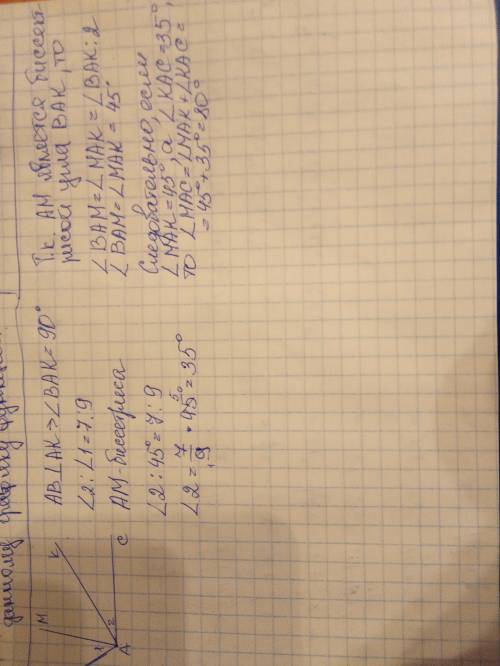 данному графику функции.
M
K
1
2
A
C
AB⊥AK > ∠BAK = 90°
∠2 : ∠1 = 7 : 9
AM - биссектриса
∠2 : 45° = 7 : 9
∠2 = 7/9 · 45° 5 = 35°
Т.к. AM является биссект-
рисой угла BAK, то
∠BAM = ∠MAK = ∠BAK : 2
∠BAM = ∠MAK = 45°
Следовательно, если
∠MAK = 45°, а ∠KAC = 35°,
то ∠MAC = ∠MAK + ∠KAC =
= 45° + 35° = 80°